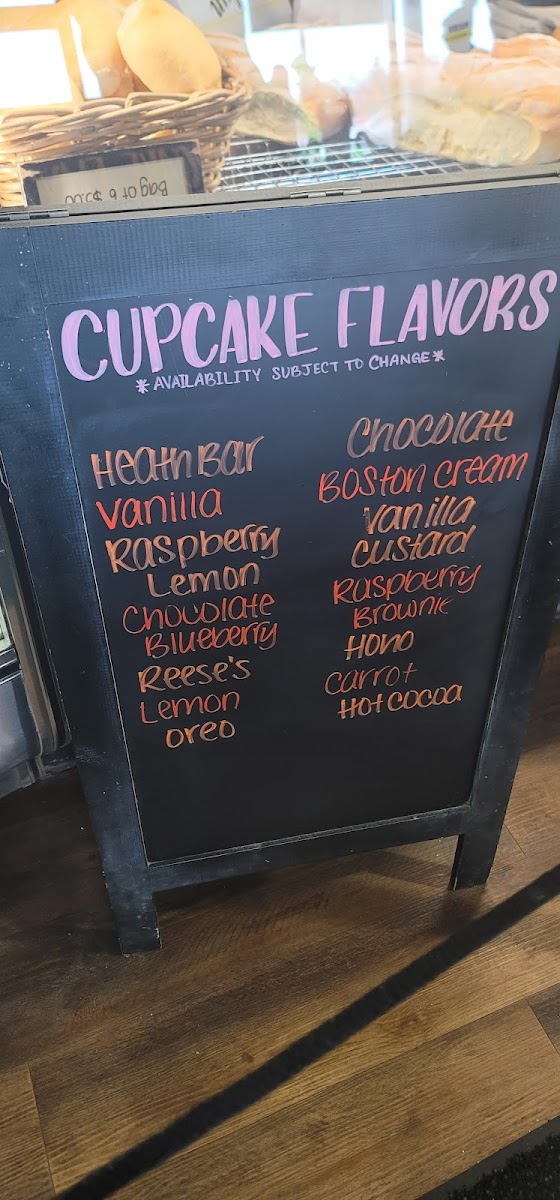 Bag of 6 $5.00
CUPCAKE FLAVORS
*AVAILABILITY SUBJECT TO CHANGE*
Heath Bar
Vanilla
Raspberry
Lemon
Chocolate
Blueberry
Reese's
Lemon
oreo
Chocolate
Boston cream
Vanilla
custard
Raspberry
Brownie
HoHo
carrot
Hot cocoa